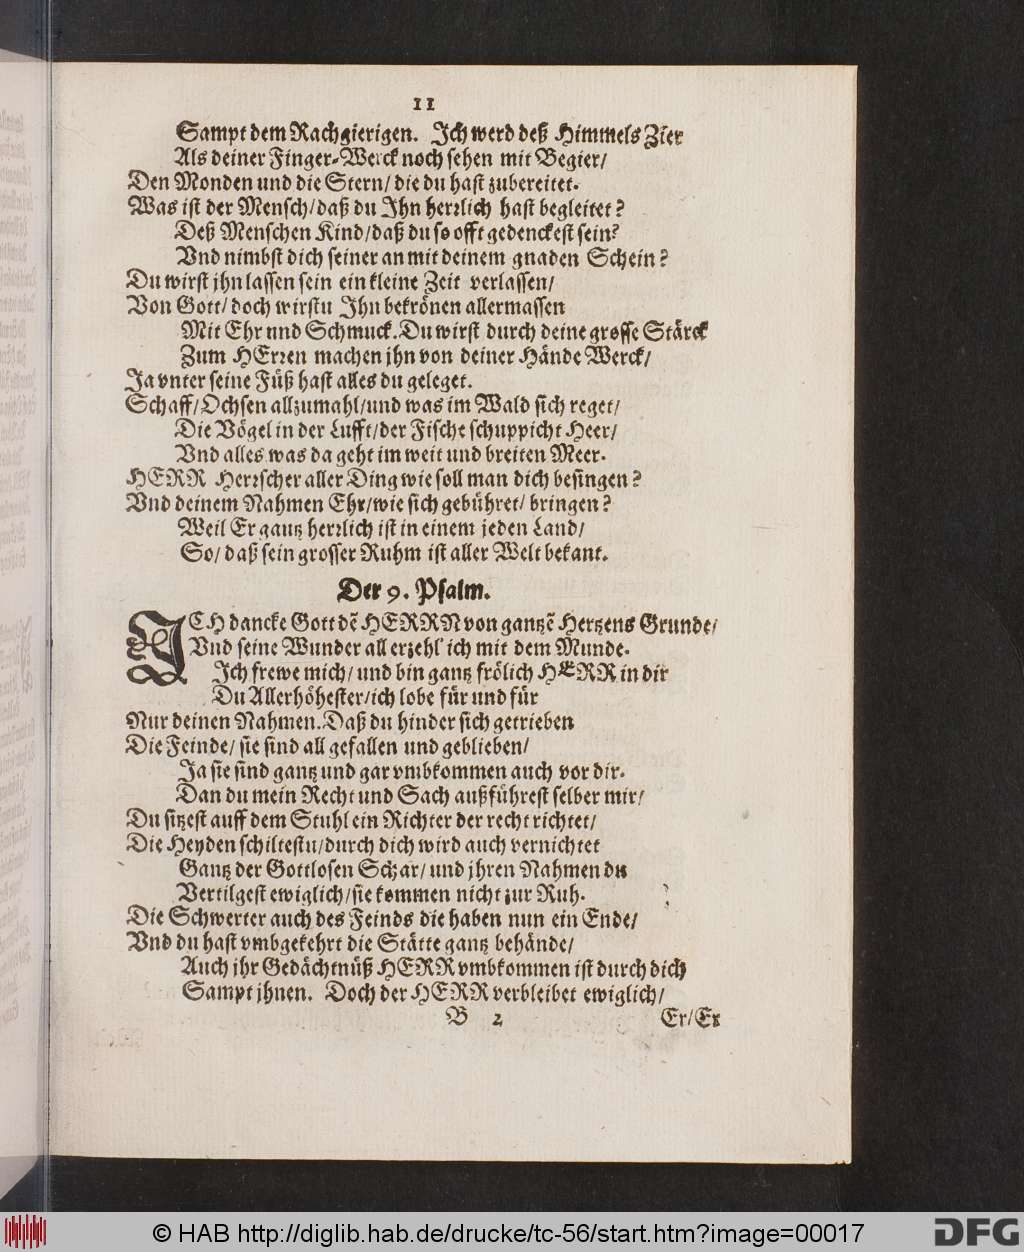 11
Sampt dem Rachgierigen. Ich werd deß Himmels Zier
Als deiner Finger-Werck noch sehen mit Begier/
Den Monden und die Stern/ die du hast zubereitet.
Was ist der Mensch/ daß du Ihn herrlich hast begleitet?
Deß Menschen Kind/ daß du so offt gedenckest sein?
Vnd nimbst dich seiner an mit deinem gnaden Schein?
Du wirst jhn lassen sein ein kleine Zeit verlassen/
Von Gott/ doch wirstu Ihn bekrönen allermassen
Mit Ehr und Schmuck. Du wirst durch deine grosse Stärck
Zum HErren machen jhn von deiner Hände Werck/
Ja vnter seine Füß hast alles du geleget.
Schaff/ Ochsen allzumahl/ und was im Wald sich reget/
Die Vögel in der Lufft/ der Fische schuppicht Heer/
Vnd alles was da geht im weit und breiten Meer.
HERR Herrscher aller Ding wie soll man dich besingen?
Vnd deinem Nahmen Ehr/ wie sich gebühret/ bringen?
Weil Er gantz herrlich ist in einem jeden Land/
So/ daß sein grosser Ruhm ist aller Welt bekant.
Der 9. Psalm.
ICH dancke Gott dẽ HERRN von gantzẽ Hertzens Grunde/
Vnd seine Wunder all erzehl' ich mit dem Munde.
Ich frewe mich/ und bin gantz frölich HERR in dir
Du Allerhöhester/ ich lobe für und für
Nur deinen Nahmen. Daß du hinder sich getrieben
Die Feinde/ sie sind all gefallen und geblieben/
Ja sie sind gantz und gar vmbkommen auch vor dir.
Dan du mein Recht und Sach außführest selber mir/
Du sitzest auff dem Stuhl ein Richter der recht richtet/
Die Heyden schiltestu/ durch dich wird auch vernichtet
Gantz der Gottlosen Schar/ und jhren Nahmen du
Vertilgest ewiglich/ sie kommen nicht zur Ruh.
Die Schwerter auch des Feinds die haben nun ein Ende/
Vnd du hast vmbgekehrt die Stätte gantz behände/
Auch jhr Gedächtnüß HERR vmbkommen ist durch dich
Sampt jhnen. Doch der HERR verbleibet ewiglich/
B 2 Er/ Er
© HAB http://diglib.hab.de/drucke/tc-56/start.htm?image=00017
DFG